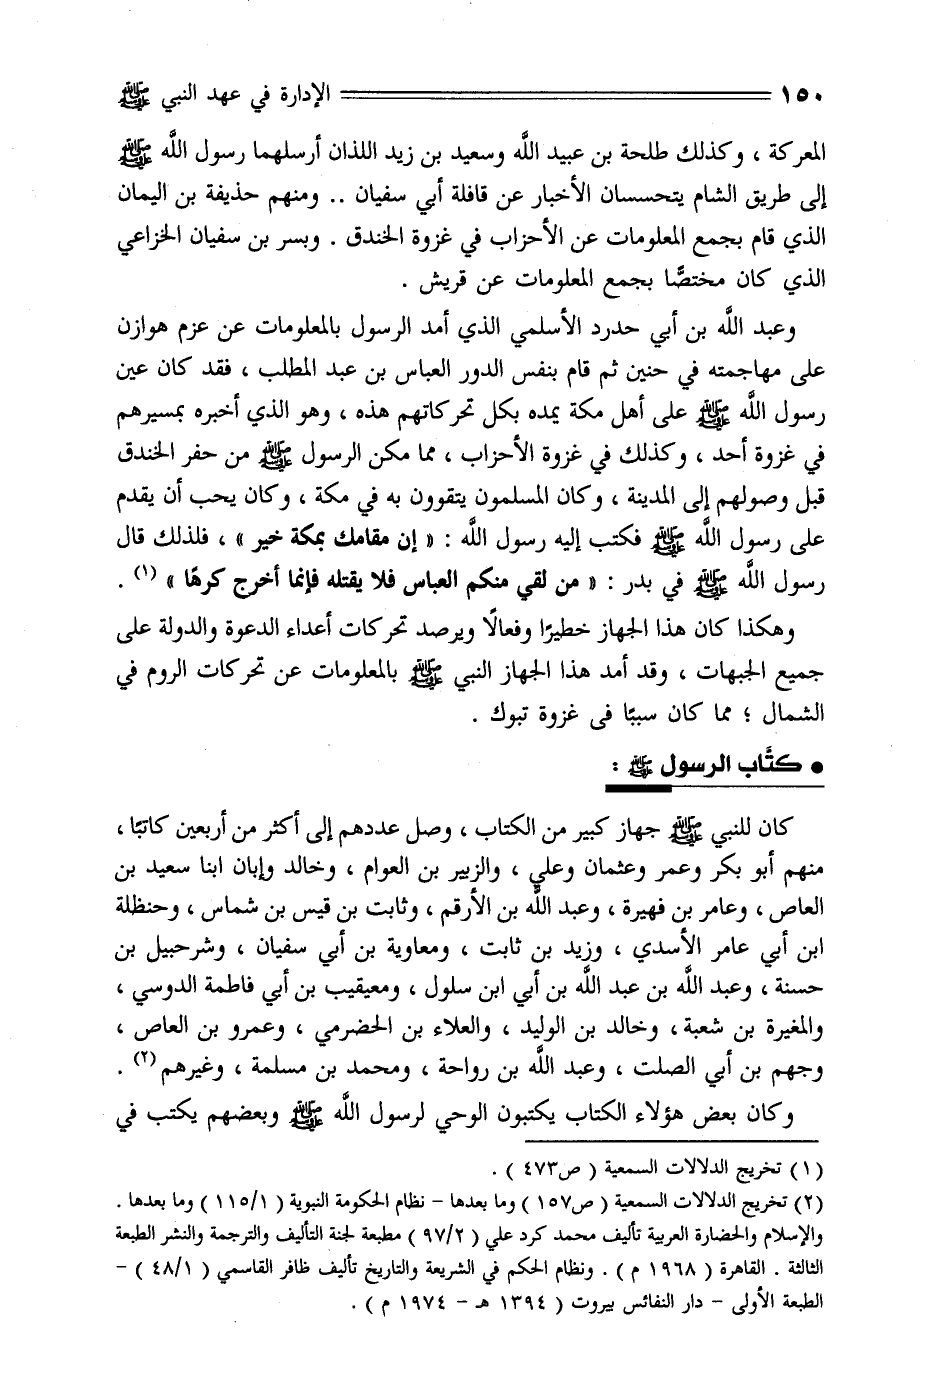 ١٥٠ الإدارة في عهد النبي ﷺ
المعركة ، وكذلك طلحة بن عبيد اللَّه وسعيد بن زيد اللذان أرسلهما رسول اللَّه ﷺ
إلى طريق الشام يتحسسان الأخبار عن قافلة أبي سفيان .. ومنهم حذيفة بن اليمان
الذي قام بجمع المعلومات عن الأحزاب في غزوة الخندق . وبسر بن سفيان الخزاعي
الذي كان مختصًّا بجمع المعلومات عن قريش .
وعبد اللَّه بن أبي حدرد الأسلمي الذي أمد الرسول بالمعلومات عن عزم هوازن
على مهاجمته في حنين ثم قام بنفس الدور العباس بن عبد المطلب ، فقد كان عين
رسول اللَّه ﷺ على أهل مكة يمده بكل تحركاتهم هذه ، وهو الذي أخبره بمسيرهم
في غزوة أحد ، وكذلك في غزوة الأحزاب ، مما مكن الرسول ﷺ من حفر الخندق
قبل وصولهم إلى المدينة ، وكان المسلمون يتقوون به في مكة ، وكان يحب أن يقدم
على رسول اللَّه ﷺ فكتب إليه رسول اللَّه : « إن مقامك بمكة خير » ، فلذلك قال
رسول اللَّه ﷺ في بدر : « من لقي منكم العباس فلا يقتله فإنما أخرج كرهًا » (١) .
وهكذا كان هذا الجهاز خطيرًا وفعالًا ويرصد تحركات أعداء الدعوة والدولة على
جميع الجبهات ، وقد أمد هذا الجهاز النبي ﷺ بالمعلومات عن تحركات الروم في
الشمال ؛ مما كان سببًا فى غزوة تبوك .
• كتَّاب الرسول ﷺ :
كان للنبي ﷺ جهاز كبير من الكتاب ، وصل عددهم إلى أكثر من أربعين كاتبًا ،
منهم أبو بكر وعمر وعثمان وعلي ، والزبير بن العوام ، وخالد وإبان ابنا سعيد بن
العاص ، وعامر بن فهيرة ، وعبد اللَّه بن الأرقم ، وثابت بن قيس بن شماس ، وحنظلة
ابن أبي عامر الأسدي ، وزيد بن ثابت ، ومعاوية بن أبي سفيان ، وشرحبيل بن
حسنة ، وعبد اللَّه بن عبد اللَّه بن أبي ابن سلول ، ومعيقيب بن أبي فاطمة الدوسي ،
والمغيرة بن شعبة ، وخالد بن الوليد ، والعلاء بن الحضرمي ، وعمرو بن العاص ،
وجهم بن أبي الصلت ، وعبد اللَّه بن رواحة ، ومحمد بن مسلمة ، وغيرهم (٢) .
وكان بعض هؤلاء الكتاب يكتبون الوحي لرسول اللَّه ﷺ وبعضهم يكتب في
(١) تخريج الدلالات السمعية ( ص٤٧٣ ) .
(٢) تخريج الدلالات السمعية ( ص١٥٧ ) وما بعدها – نظام الحكومة النبوية ( ١١٥/١ ) وما بعدها .
والإسلام والحضارة العربية تأليف محمد كرد علي ( ٩٧/٢ ) مطبعة لجنة التأليف والترجمة والنشر الطبعة
الثالثة . القاهرة ( ١٩٦٨ م ) . ونظام الحكم في الشريعة والتاريخ تأليف ظافر القاسمي ( ٤٨/١ ) –
الطبعة الأولى – دار النفائس بيروت ( ١٣٩٤ هـ – ١٩٧٤ م ) .